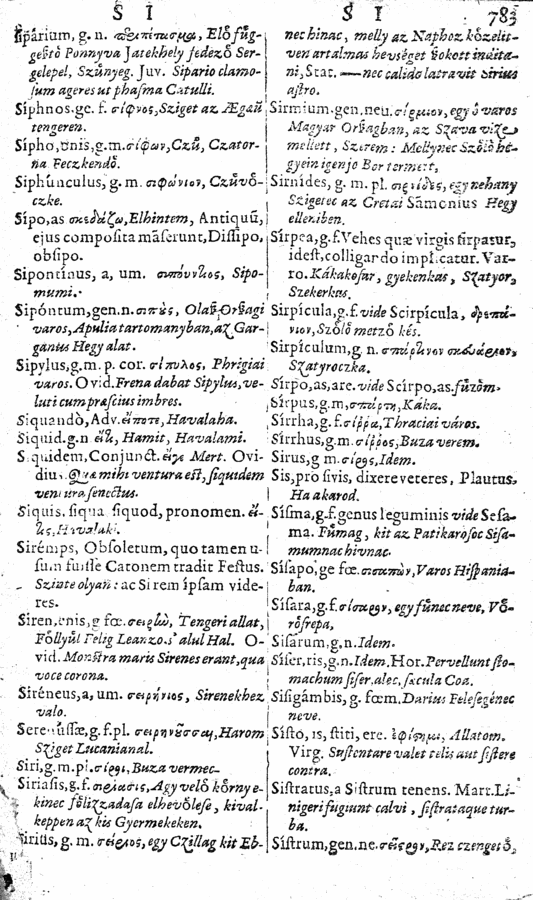 S I
S I
783
Sipárium, g. n. Elő függ-
gesztő Ponnyva Jatekhely fedező Ser-
gelepel, Szűnyeg. Juv. Sipario clamo-
sum ageres ut phasma Catulli.
Síphnos. ge. f. σίφνος, Sziget az Ægaeű
tengeren.
Sípho, ónis, g. m. σίφων, Czű, Czator-
na Feczkendő.
Siphúnculus, g. m. σιφώνιον, Czűvő-
czke.
Sípo, as σκεδάζω, Elhintem, Antiquũ,
ejus composita mãserunt, Dissipo,
obsipo.
Sipontinus, a, um. Sipo-
mumi.
Sipóntum, gen. n. σιπὺς, Olasz Orszagi
varos, Apulia tartomanyban, az Gar-
ganius Hegy alat.
Sipylus, g. m. p. cor. σίπυλος, Phrigiai
varos. Ovid. Frena dabat Sipylus, ve-
luti cum præscius imbres.
Siquandò, Adv. εἴποτε, Havalaha.
Siquid. g. n Hamit, Havalami.
Siquidem, Conjunct. εἴγε Mert. Ovi-
dius. Quæ mihi ventura est, siquidem
ventura senectus.
Siquis, siqua, siquod, pronomen. εἴ-
τις, Havalaki.
Sirémps, Obsoletum, quo tamen u-
sum fuisse Catonem tradit Festus.
Szinte olyan: ac Si rem ípsam vide-
res.
Siren, enis, g fœ. σειρὼ, Tengeri allat,
Főllyűl Felig Leanzo. s' alul Hal. O-
vid. Monstra maris Sirenes erant, qua
voce corona.
Siréneus, a, um. σειρήνιος, Sirenekhez
valo.
Sirenússæ, g. f. pl. σειρηνοῦσσαι, Harom
Sziget Lucanianal.
Siri, g. m. pl. σίροι, Buza vermec.
Siriasis, g. f. σειρίασις, Agy velő kőrny e-
kinec fölizzadasa elhevőlese, kival-
keppen az kis Gyermekeken.
Siriús, g. m. σείριος, egy Czillag kit Eb-
nec hinac, melly az Naphoz közelit-
ven artalmas hevséget szokott indita-
ni, Stat. — nec calido latravit Sirius
astro.
Sirmium. gen. neu. σίρμιον, egy ó varos
Magyar Orszagban, az Szava vize
mellett, Szerem: Mellynec Szőlő he-
gyein igen jo Bor termett,
Sirnídes, g. m. pl. σιρνίδες, egy nehany
Szigetec az Cretai Sãmonius Hegy
elleniben.
Sírpea, g. f. Vehes quæ virgis sirpatur,
idest, colligar do impl. catur. Var-
ro. Kákakosar, gyekenkas, Szatyor,
Szekerkas.
Sirpícula, g. f. vide Scirpícula, δρεπά-
νιον, Szőlő metző kés.
Sirpículum, g. n.
Szatyroczka.
Sírpo, as, are. vide Scírpo, as. fűzőm.
Sírpus, g. m, σπάρτη, Káka.
Sírrha, g. f. σίῤῥα, Thraciai város.
Sírrhus, g. m. σίῤῥος, Buza verem.
Sirus, g m. σίρος, Idem.
Sis, pro sivis, dixere veteres, Plautus,
Ha akarod.
Sísma, g. f. genus leguminis vide Sesa-
ma. Fűmag, kit az Patikarosoc Sisa-
mumnac hivnac.
Sisapo, ge fœ. σισαπὼν, Varos Hispania-
ban.
Sísara, g. f. σίσαρον, egy fűnec neve, Vő-
rősrepa,
Sisarum, g. n. Idem.
Síser, ris, g. n. Idem. Hor. Pervellunt sto-
machum siser, alec, fæcula Coa.
Sisigámbis, g. fœm. Darius Felesegénec
neve.
Sísto, is, stiti, ere. ἐφίστημι, Allatom.
Virg. Sustentare valet telis aut sistere
contra.
Sistratus, a Sistrum tenens. Mart. Li-
nigeri fugiunt calvi, sistrataque tur-
ba.
Sístrum, gen. ne. σεῖστρον, Rez czengető,